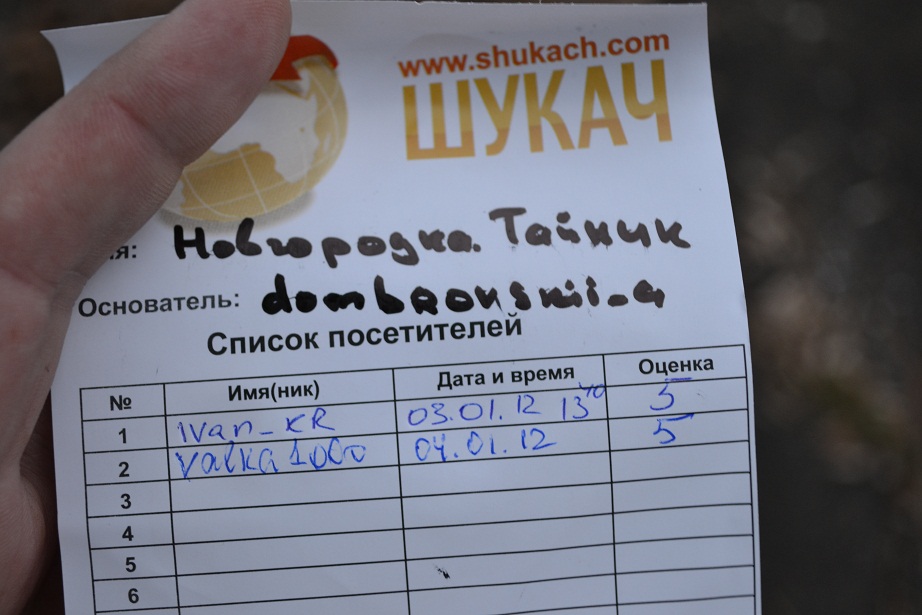 www.shukach.com
ШУКАЧ
я: Новгородка. Тайник
Основатель: dombrovskii_a
Список посетителей
№ Имя(ник) Дата и время Оценка
1 ivan_KR 03.01.12 13 40 5
2 Valka1000 04.01.12 5
3
4
5
6